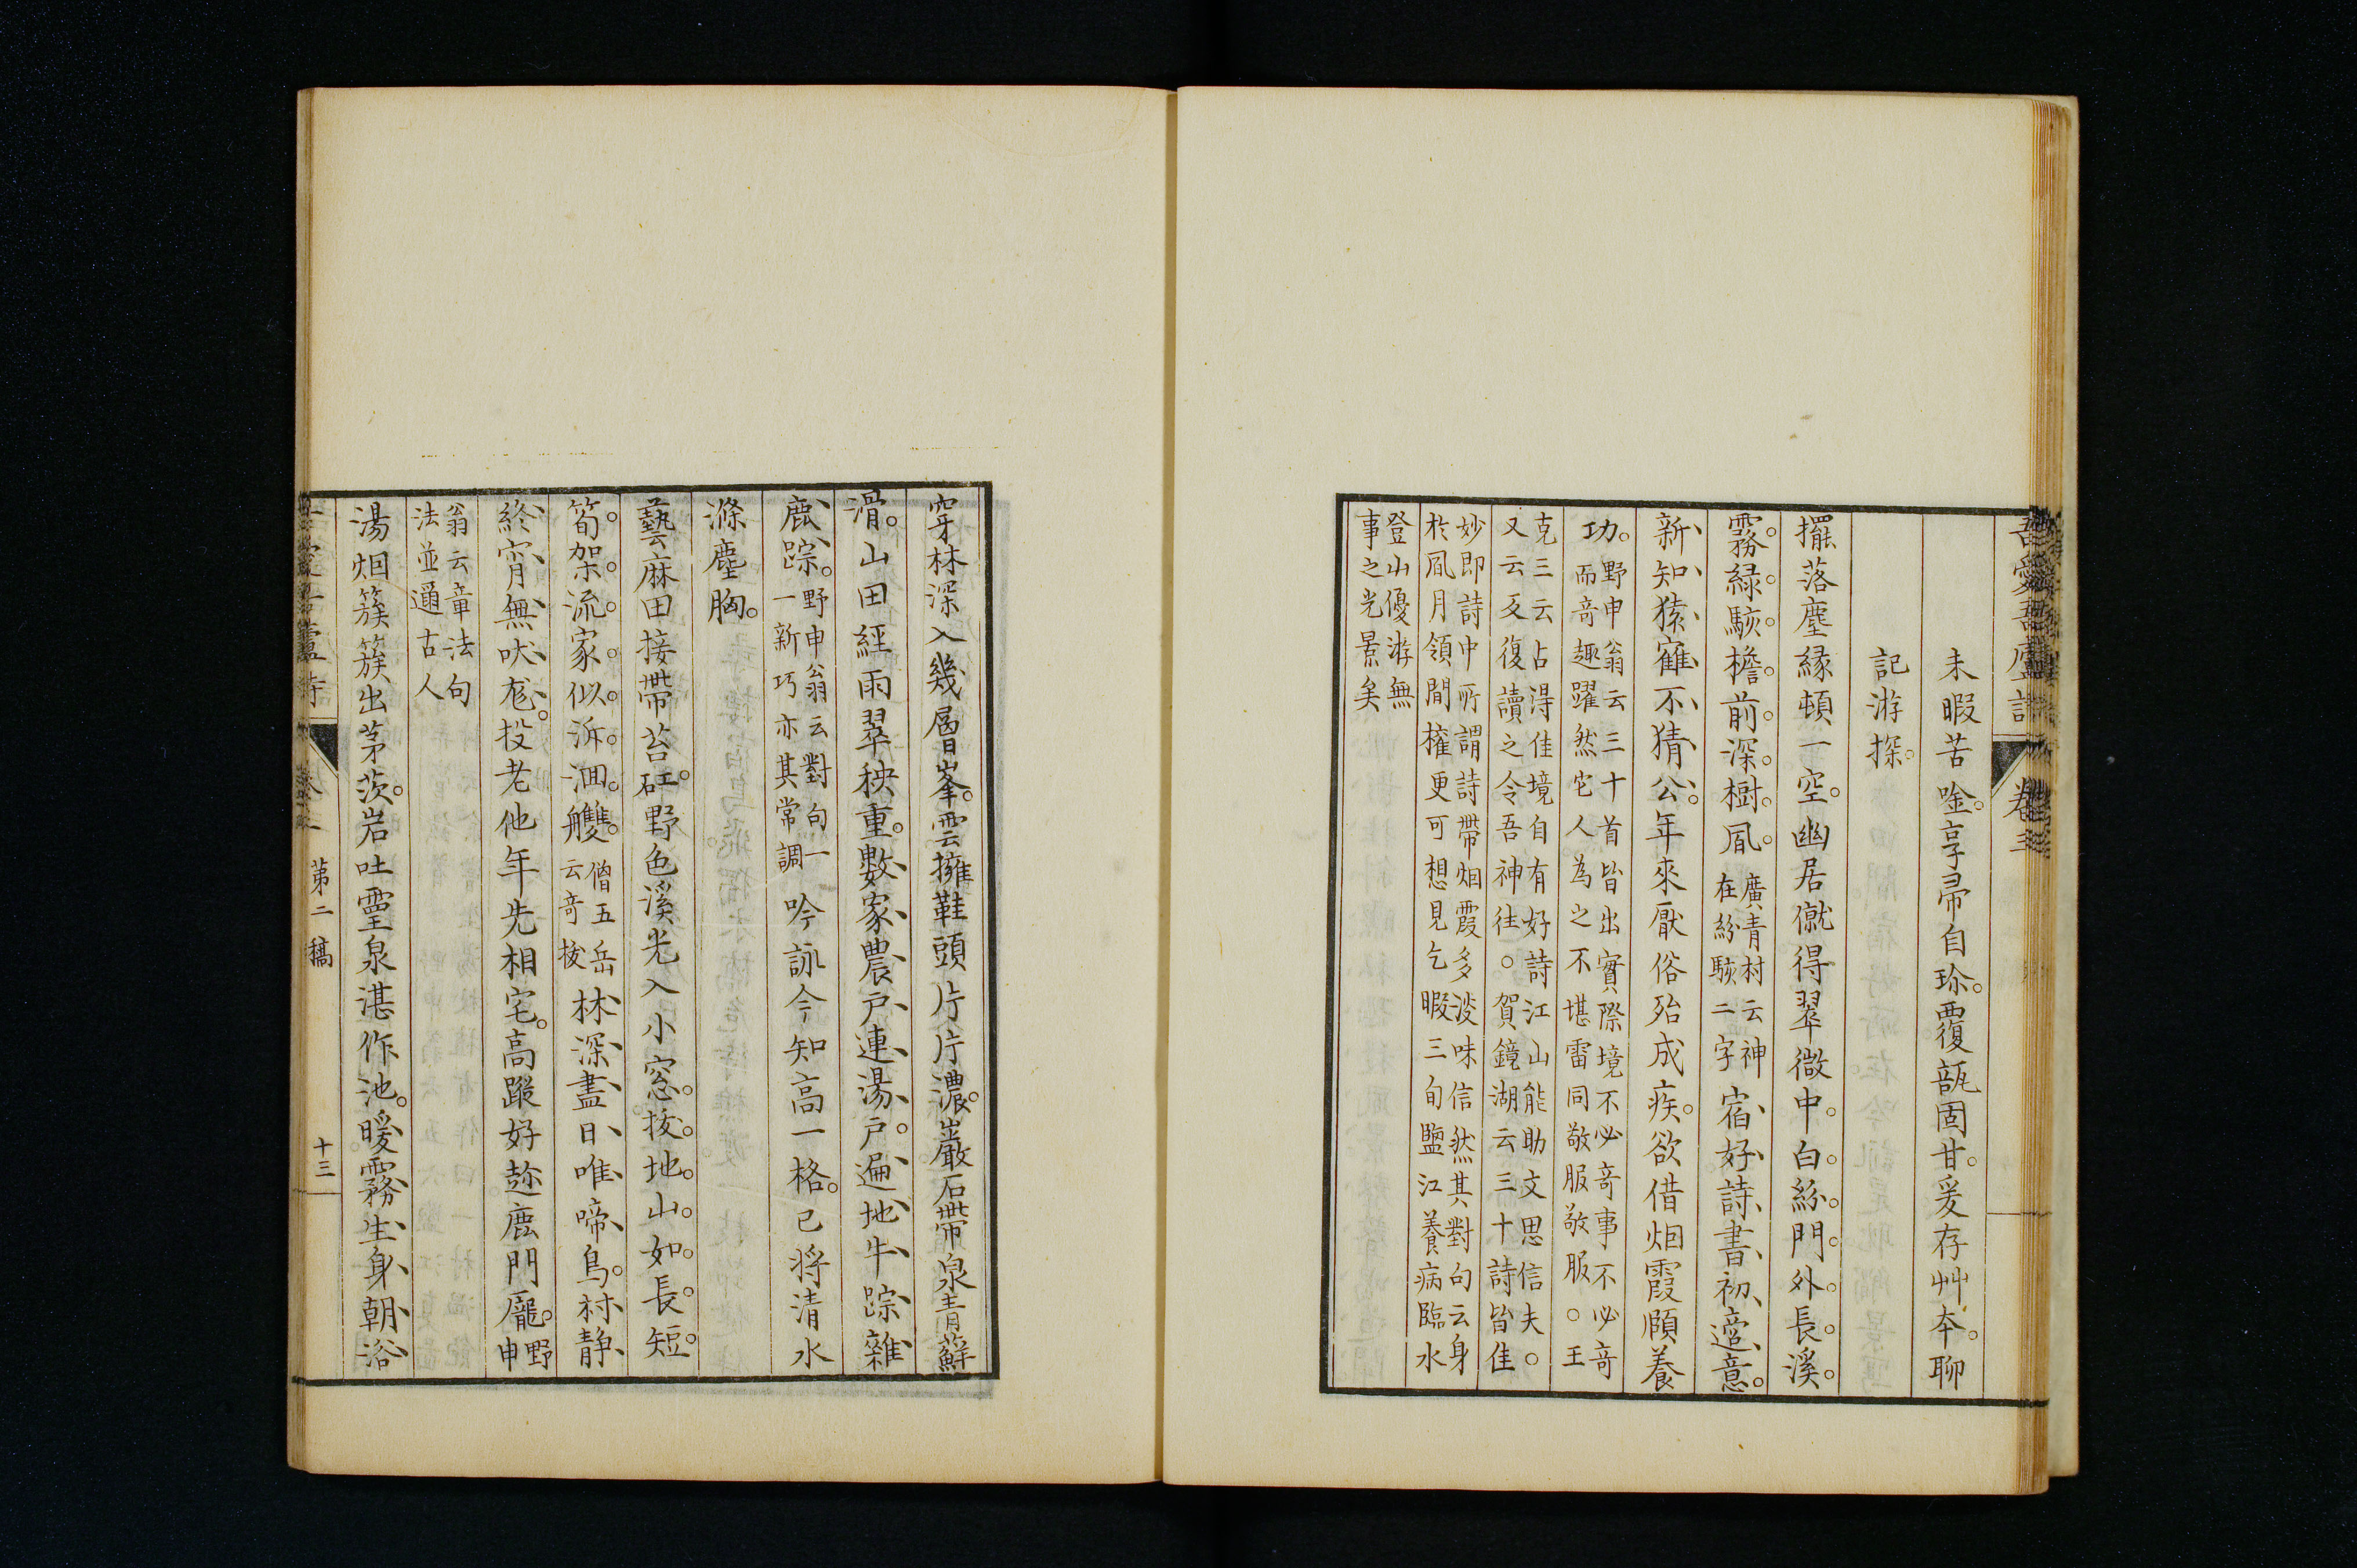 未暇苦唫享帚自珍覆瓿固甘爰存艸本聊
記游探
擺落塵緣頓一空幽居僦得翠微中白紛門外長溪
霧綠駭檐前深樹風廣青村云神在紛駭二字宿好詩書初適意
新知猿寉不猜公年來厭俗殆成疾欲借烟霞頤養
功野申翁云三十首皆出實際境不必奇事不必奇而奇趣躍然它人為之不堪雷同敬服敬服○王
克三云占得佳境自有好詩江山能助文思信夫○又云反復讀之令吾神往○賀鏡湖云三十詩皆佳
妙即詩中所謂詩帶烟霞多淡味信然其對句云身於風月領閒權更可想見乞暇三旬鹽江養病臨水
登山優游無事之光景矣
穿林深入幾層峯雲擁鞋頭片片濃巖石帶泉青蘚
滑山田經雨翠秧重數家農戶連湯戶遍地牛踪雜
鹿踪野申翁云對句一一新巧亦其常調吟詠今知高一格已將清水
滌塵胸
藝麻田接帶苔矼野色溪光入小窓拔地山如長短
筍架流家似泝洄艭僧五岳云奇拔林深盡日唯啼鳥村静
終宵無吠尨投老他年先相宅高蹤好趂鹿門龐野申
翁云章法句法並逼古人
湯烟簇簇出茅茨岩吐靈泉湛作池暖霧生身朝浴
第二稿
十三